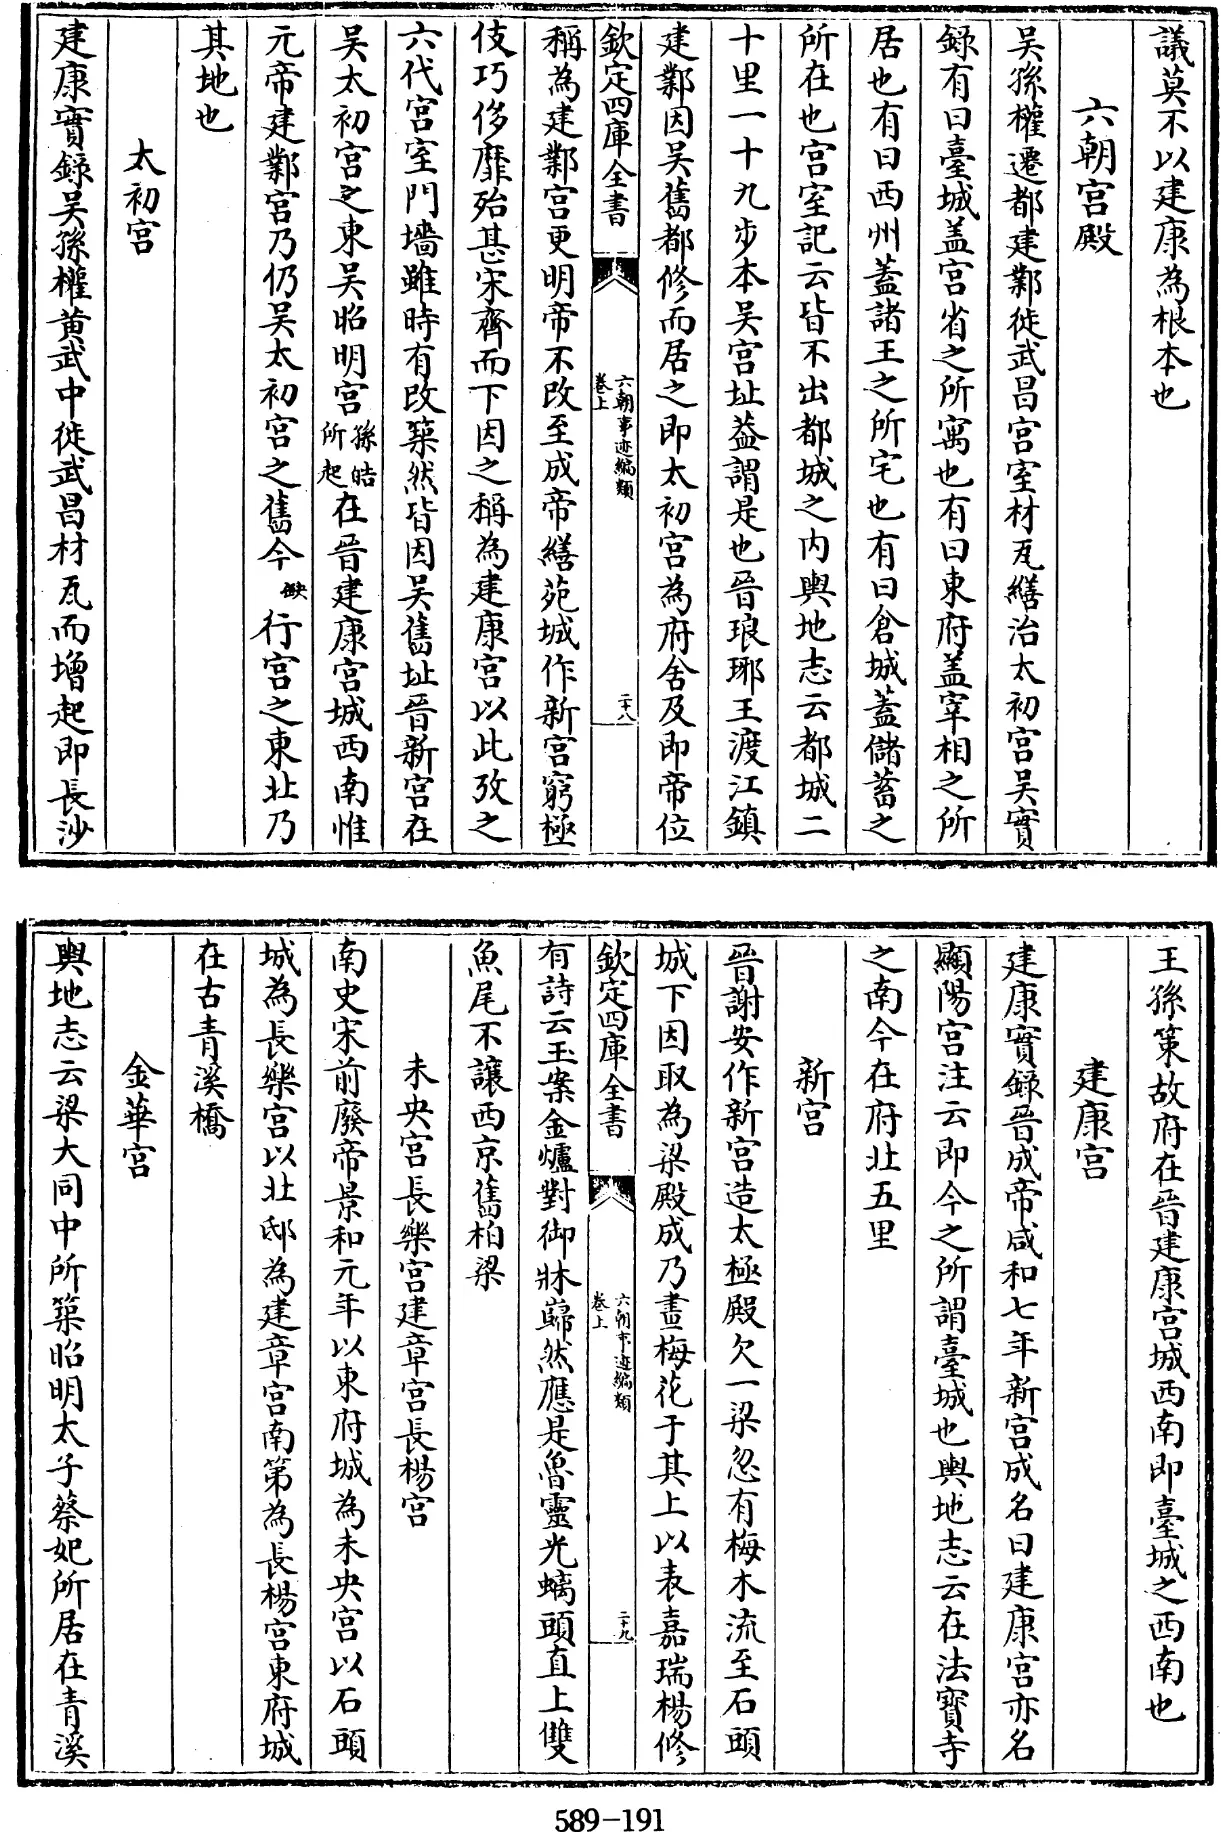 議莫不以建康為根本也
六朝宮殿
吳孫權遷都建鄴徙武昌宮室材瓦繕治太初宮吳實
錄有曰臺城盖宮省之所寓也有曰東府盖宰相之所
居也有曰西州蓋諸王之所宅也有曰倉城蓋儲蓄之
所在也宮室記云皆不出都城之内輿地志云都城二
十里一十九步本吳宮址益謂是也晉琅琊王渡江鎮
建鄴因吳舊都修而居之即太初宮為府舍及即帝位
欽定四庫全書
六朝事迹編類
卷上
二十八
稱為建鄴宮更明帝不改至成帝繕苑城作新宮窮極
伎巧侈靡殆甚宋齊而下因之稱為建康宮以此攷之
六代宮室門墻雖時有改築然皆因吳舊址晉新宮在
吳太初宮之東吳昭明宮孫皓所起在晉建康宮城西南惟
元帝建鄴宮乃仍吳太初宮之舊今缺行宮之東北乃
其地也
太初宮
建康實錄吳孫權黄武中徙武昌材瓦而增起即長沙
王孫策故府在晉建康宮城西南即臺城之西南也
建康宮
建康實錄晉成帝咸和七年新宮成名曰建康宮亦名
顯陽宮注云即今之所謂臺城也輿地志云在法寶寺
之南今在府北五里
新宮
晉謝安作新宮造太極殿欠一梁忽有梅木流至石頭
城下因取為梁殿成乃畫梅花于其上以表嘉瑞楊修
欽定四庫全書
六朝事迹編類
卷上
二十九
有詩云玉案金爐對御牀巋然應是魯靈光螭頭直上雙
魚尾不讓西京舊柏梁
未央宮長樂宮建章宮長楊宮
南史宋前廢帝景和元年以東府城為未央宮以石頭
城為長樂宮以北邸為建章宮南第為長楊宮東府城
在古青溪橋
金華宮
輿地志云梁大同中所築昭明太子蔡妃所居在青溪
589-191